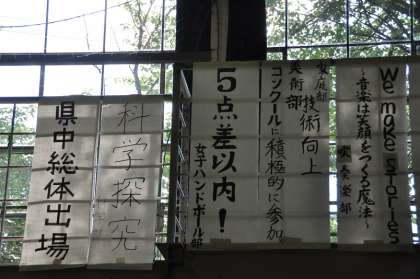 We make stories
～音楽は笑顔をつくる魔法～
吹奏楽部
家庭部
技術向上
美術部
コンクールに積極的に参加
5点差以内！
女子ハンドボール部
科学探究
県中総体出場